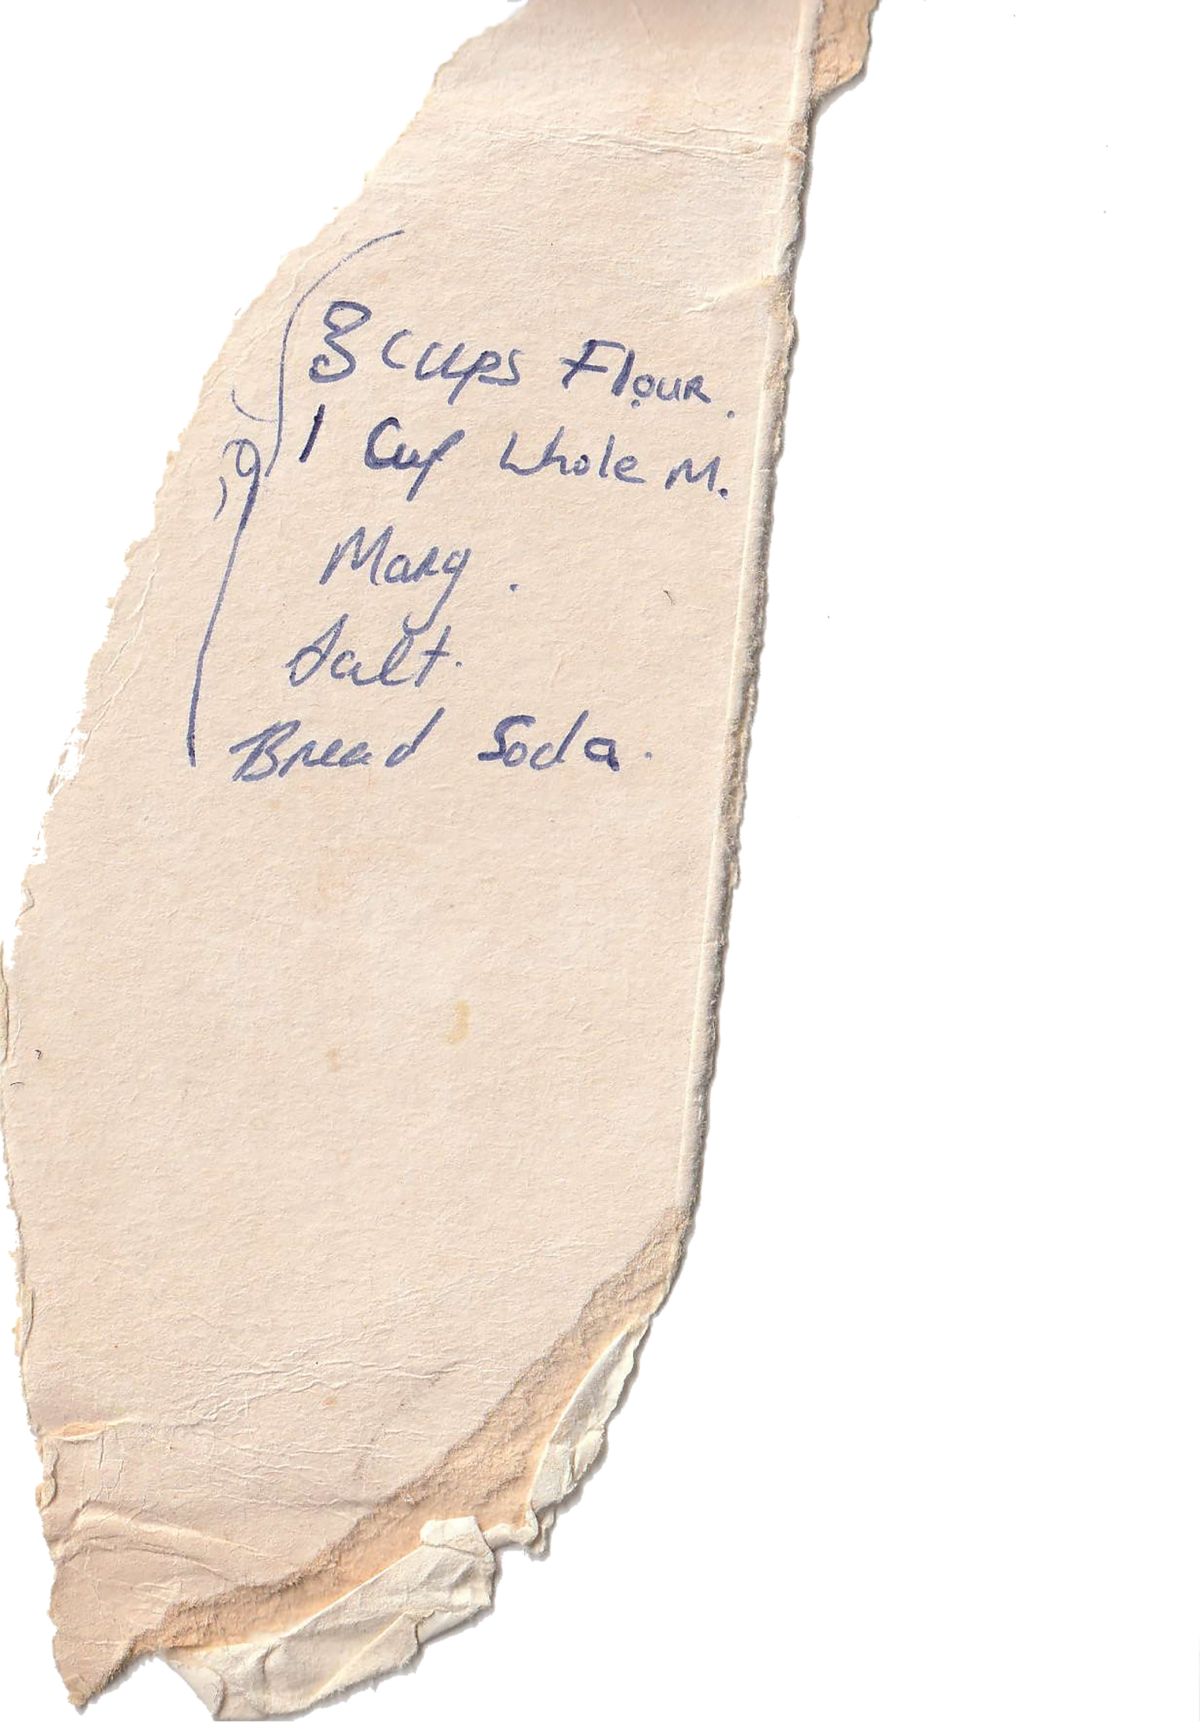 3 Cups Flour.
1 Cup Whole M.
Marg.
Salt.
Bread Soda.